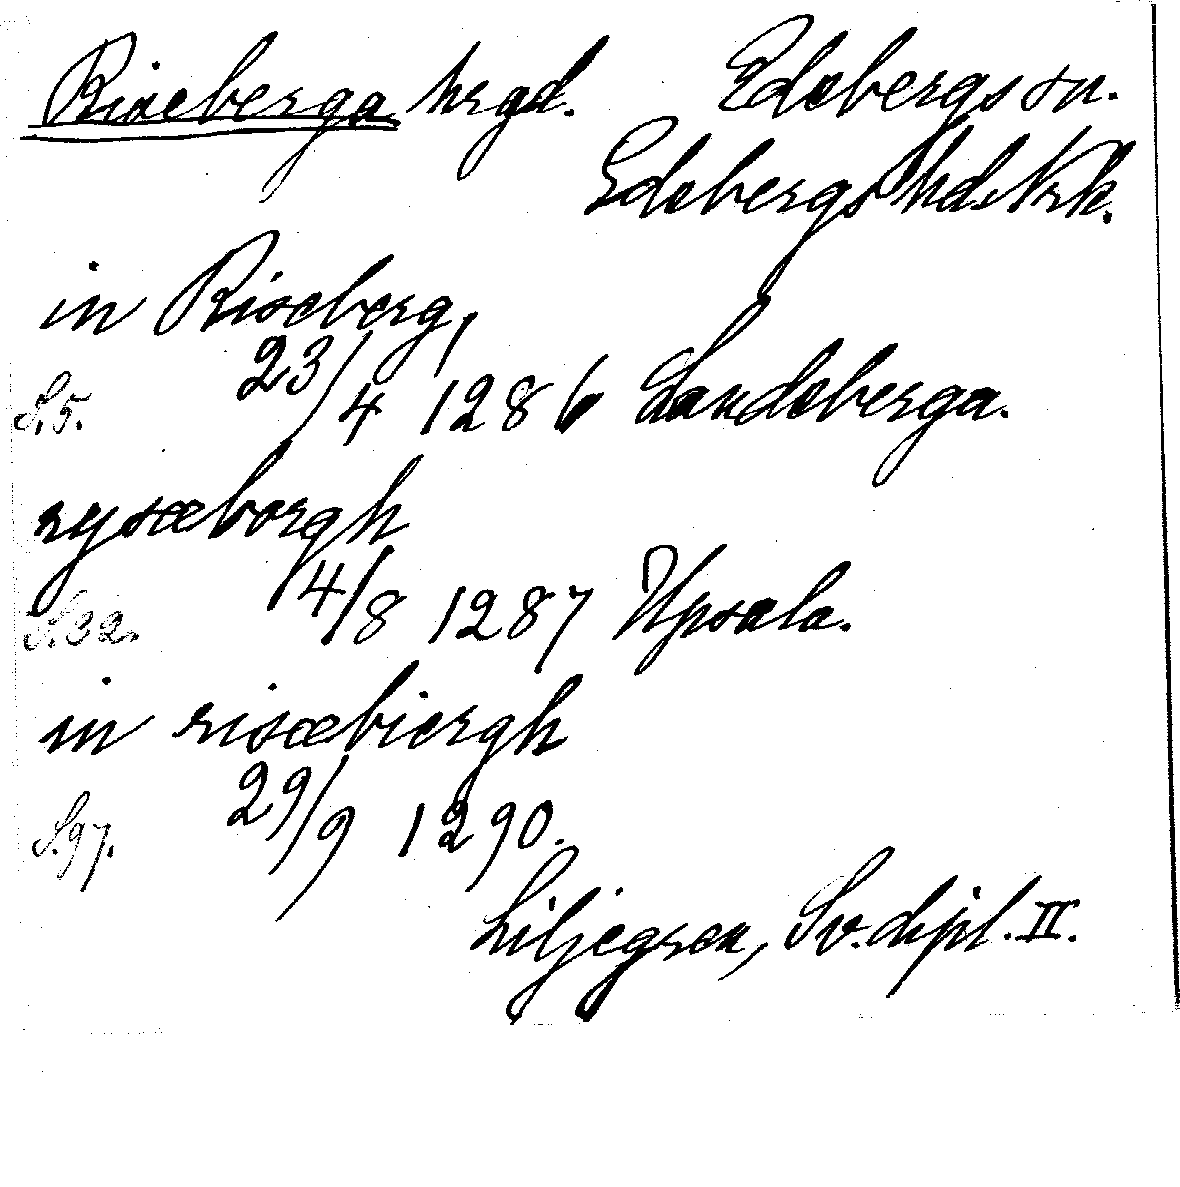 Riseberga hrgd. Edsbergs sn.
Edsbergs hd. Nrk.
in Riseberg,
S. 5. 23/4 1286 Landeberga.
rysæbergh
S. 32. 14/8 1287 Upsala.
in risæbiergh
S. 97. 29/9 1290.
Liljegren, Sv. dipl. II.